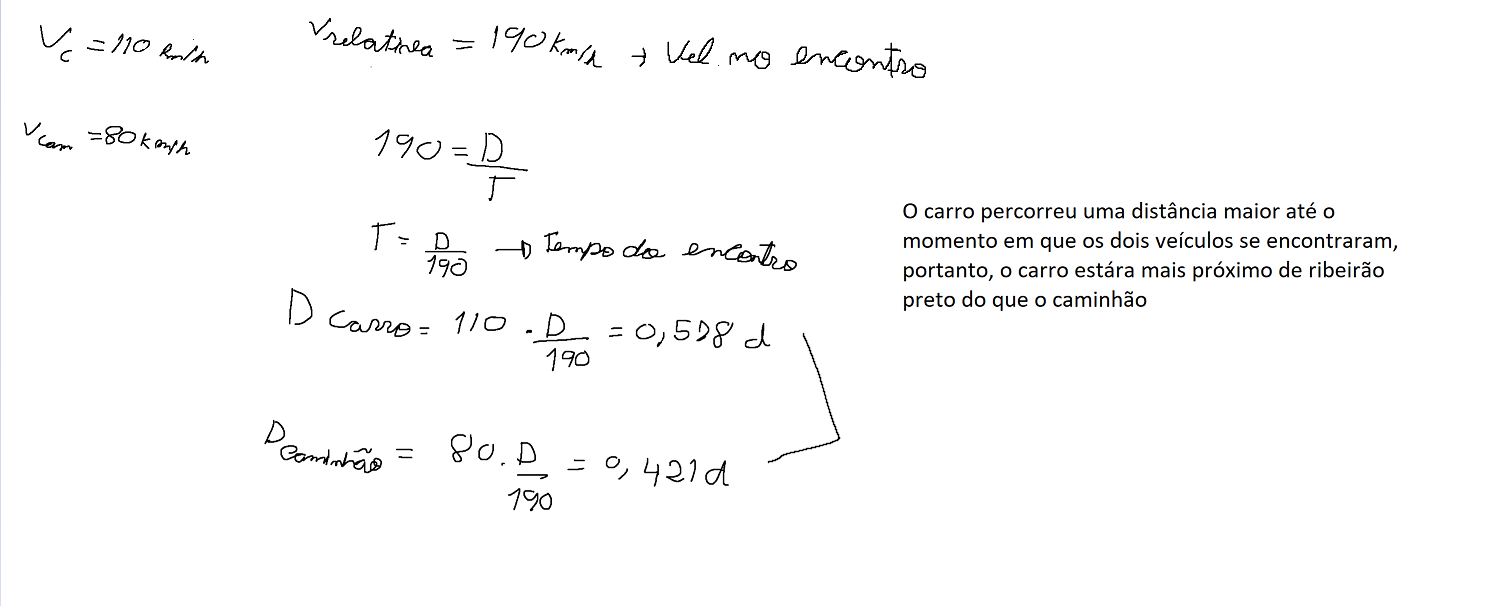 Vc = 110 km/h
Vrelativa = 190 km/h → Vel. no encontro
Vcam = 80 km/h
190 = D/T
T = D/190 → Tempo do encontro
D carro = 110 . D/190 = 0,578 d
D caminhão = 80 . D/190 = 0,421 d
O carro percorreu uma distância maior até o
momento em que os dois veículos se encontraram,
portanto, o carro estára mais próximo de ribeirão
preto do que o caminhão